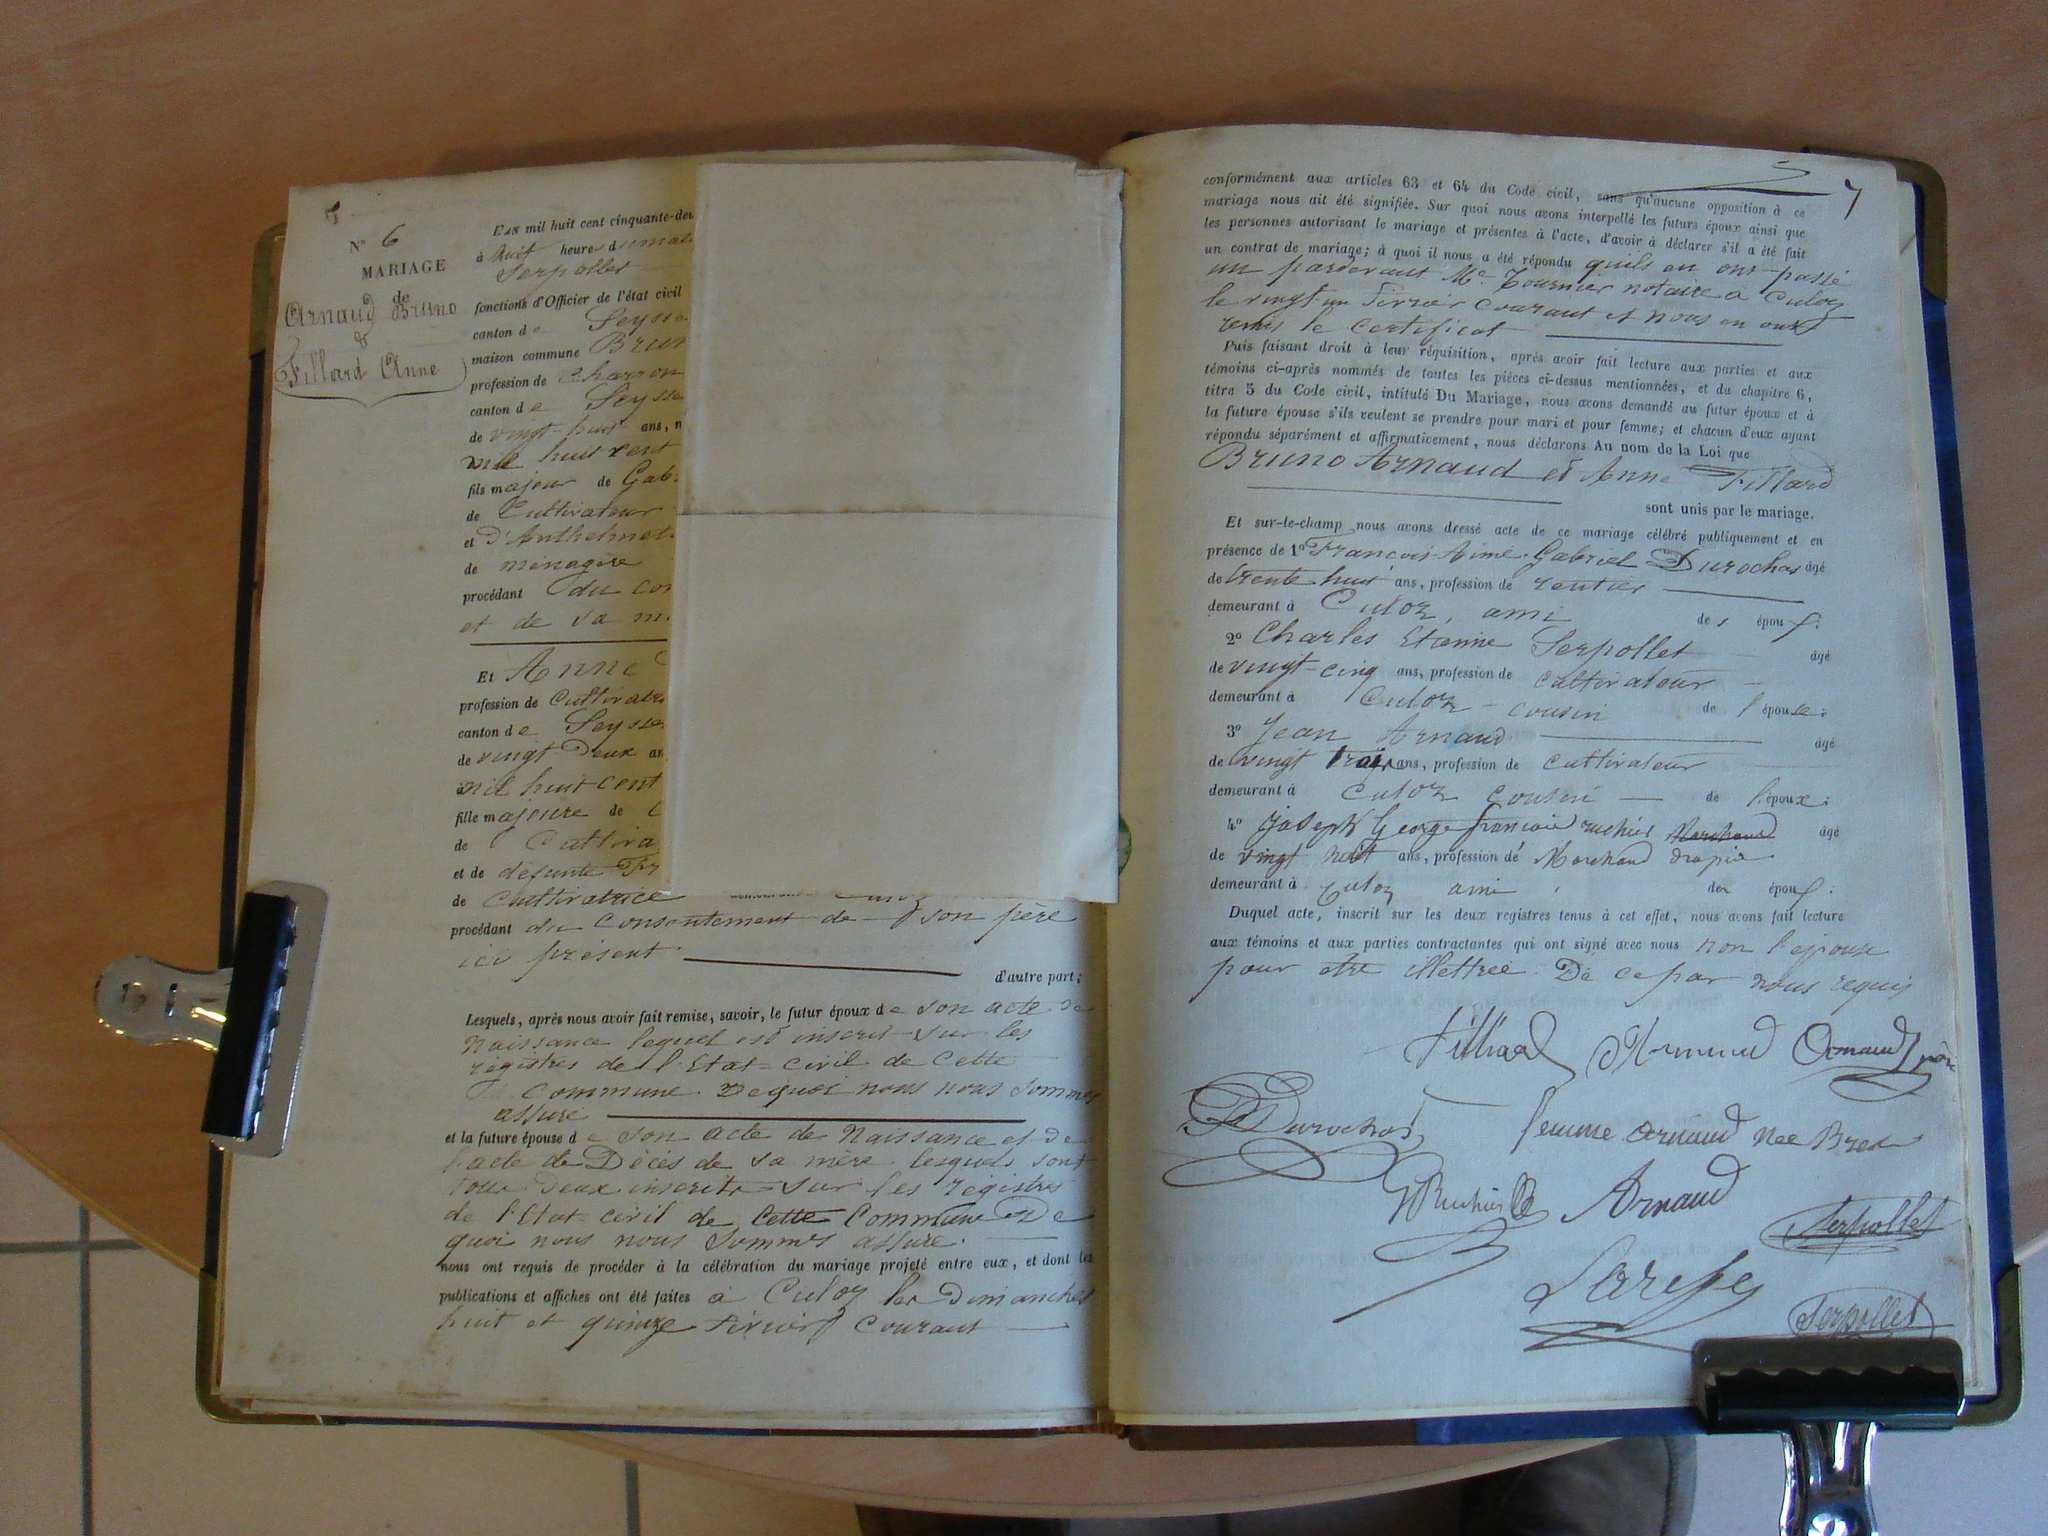 N° 6
MARIAGE
de
Arnaud Bruno
&
Fillard Anne
L'AN mil huit cent cinquante-deu
à huit heures du mat
Serpollet
fonctions d'Officier de l'état civil
canton de Seysse
maison commune Brun
profession de charron
canton de Seysse
de vingt-huit ans, n
mil huit cent
fils majeur de Gab
de Cultivateur
et d'Anthelmet
de ménagère
procédant du con
et de sa m
Et Anne
profession de Cultivatri
canton de Seysse
de vingt Deux an
mil huit cent
fille majeure de
de Cultiva
et de défunte Fr
de Cultivatrice
procédant du Consentement de son père
ici présent.
d'autre part;
Lesquels, après nous avoir fait remise, savoir, le futur époux de son acte de
Naissance lequel est inscrit sur les
régistres de l'Etat-civil de Cette
Commune. De quoi nous nous sommes
assuré
et la future épouse de son acte de Naissance et de
l'acte de Décès de sa mère lesquels sont
tous deux inscrits sur les régistres
de l'Etat-civil de cette Commune De
quoi nous nous sommes assuré.
nous ont requis de procéder à la célébration du mariage projeté entre eux, et dont les
publications et affiches ont été faites à Culoz les Dimanches
huit et quinze février courant
7
conformément aux articles 63 et 64 du Code civil, sans qu'aucune opposition à ce
mariage nous ait été signifiée. Sur quoi nous avons interpellé les futurs époux ainsi que
les personnes autorisant le mariage et présentes à l'acte, d'avoir à déclarer s'il a été fait
un contrat de mariage; à quoi il nous a été répondu quils en ont passé
un pardevant Me Tournier notaire a Culoz
le vingt un février courant et nous en ont
remis le certificat
Puis faisant droit à leur réquisition, après avoir fait lecture aux parties et aux
témoins ci-après nommés de toutes les pièces ci-dessus mentionnées, et du chapitre 6,
titre 5 du Code civil, intitulé Du Mariage, nous avons demandé au futur époux et à
la future épouse s'ils veulent se prendre pour mari et pour femme; et chacun d'eux ayant
répondu séparément et affirmativement, nous déclarons Au nom de la Loi que
Bruno Arnaud et Anne Fillard
sont unis par le mariage.
Et sur-le-champ nous avons dressé acte de ce mariage célébré publiquement et en
présence de 1° François Aimé Gabriel Durochas âgé
de trente huit ans, profession de rentier
demeurant à Culoz, ami des époux.
2° Charles Etienne Serpollet âgé
de vingt-cinq ans, profession de cultivateur
demeurant à Culoz cousin de l'épouse;
3° Jean Arnaud âgé
de vingt trois ans, profession de cultivateur
demeurant à Culoz cousin de l'époux;
4° Joseph George françois ruchier Marchand âgé
de vingt neuf ans, profession de Marchand drapier
demeurant à Culoz ami des époux.
Duquel acte, inscrit sur les deux registres tenus à cet effet, nous avons fait lecture
aux témoins et aux parties contractantes qui ont signé avec nous non l'épouse
pour etre illettrée. De ce par nous requis
Filliard Arnaud Arnaud père
Durochas femme arnaud nee Bret
Arnaud
Serpollet
Serpollet